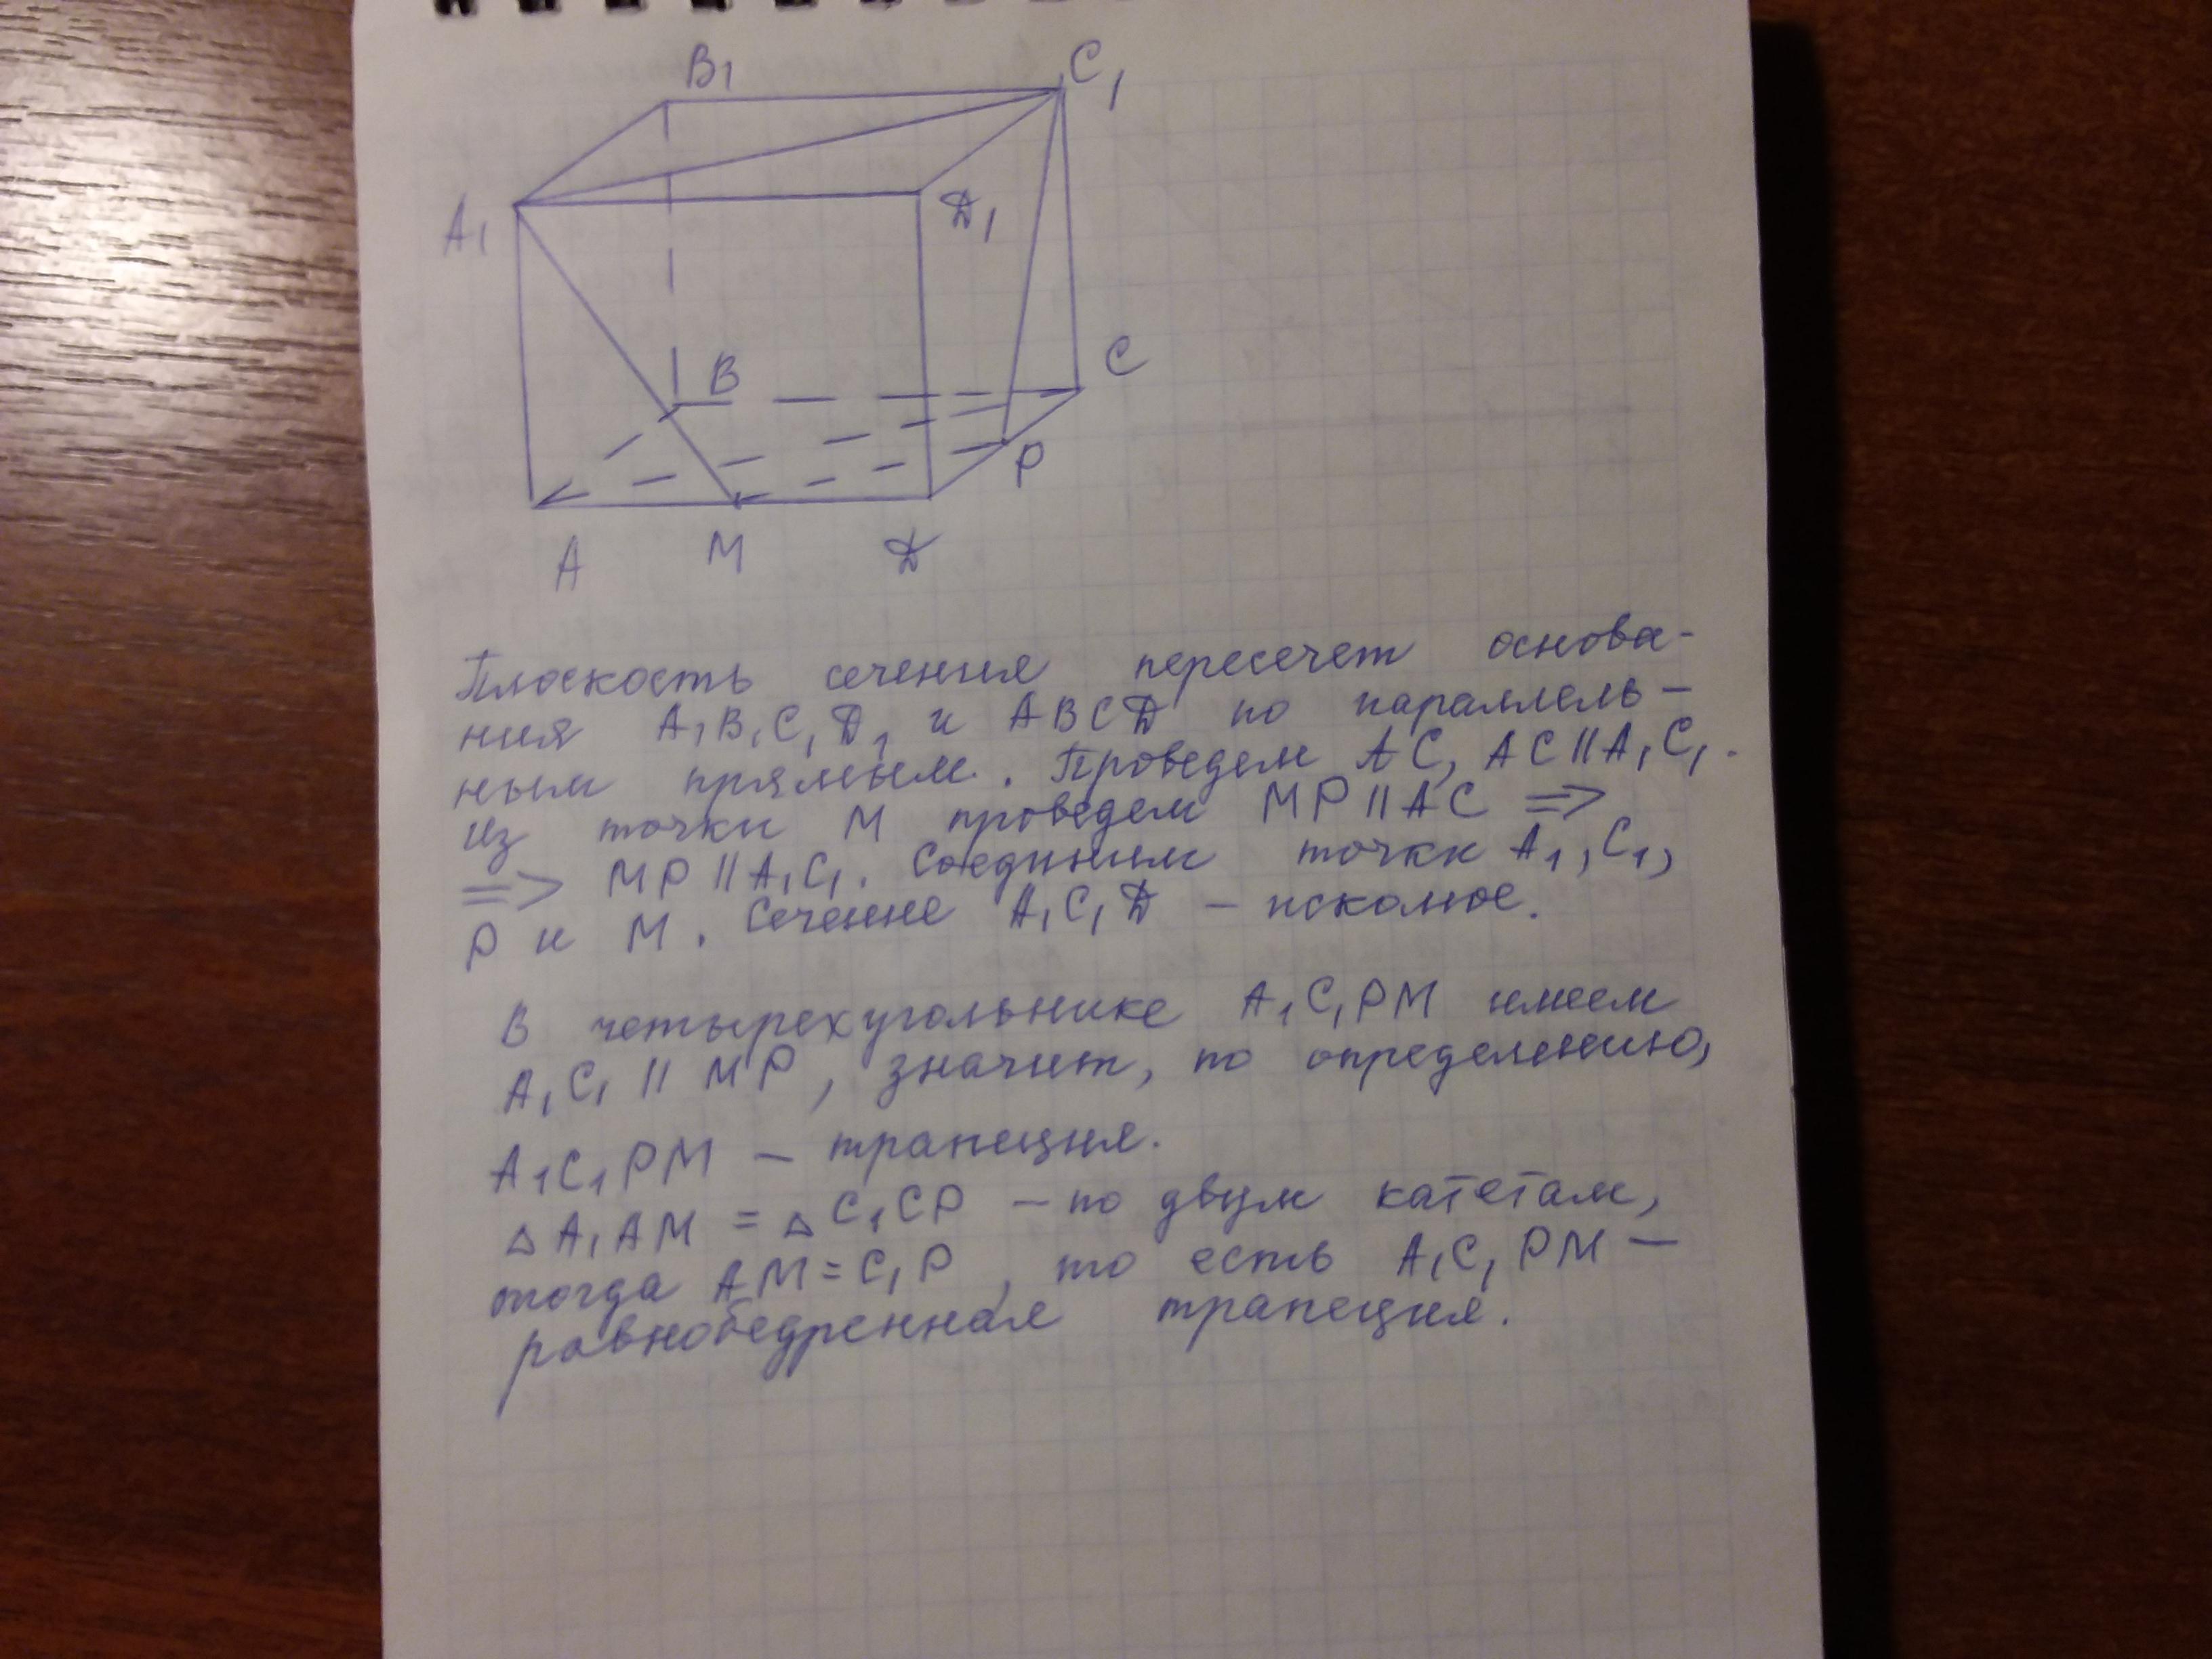 B1
C1
A1
D1
B
C
P
A
M
D
Плоскость сечения пересечет основа-
ния A1B1C1D1 и ABCD по параллель-
ным прямым. Проведем AC, AC||A1C1.
Из точки M проведем MP||AC =>
=> MP||A1C1. Соединим точки A1, C1,
P и M. Сечение A1C1D - искомое.
В четырехугольнике A1C1PM имеем
A1C1 || MP, значит, по определению,
A1C1PM - трапеция.
△A1AM = △C1CP - по двум катетам,
тогда AM=C1P, то есть A1C1PM -
равнобедренная трапеция.